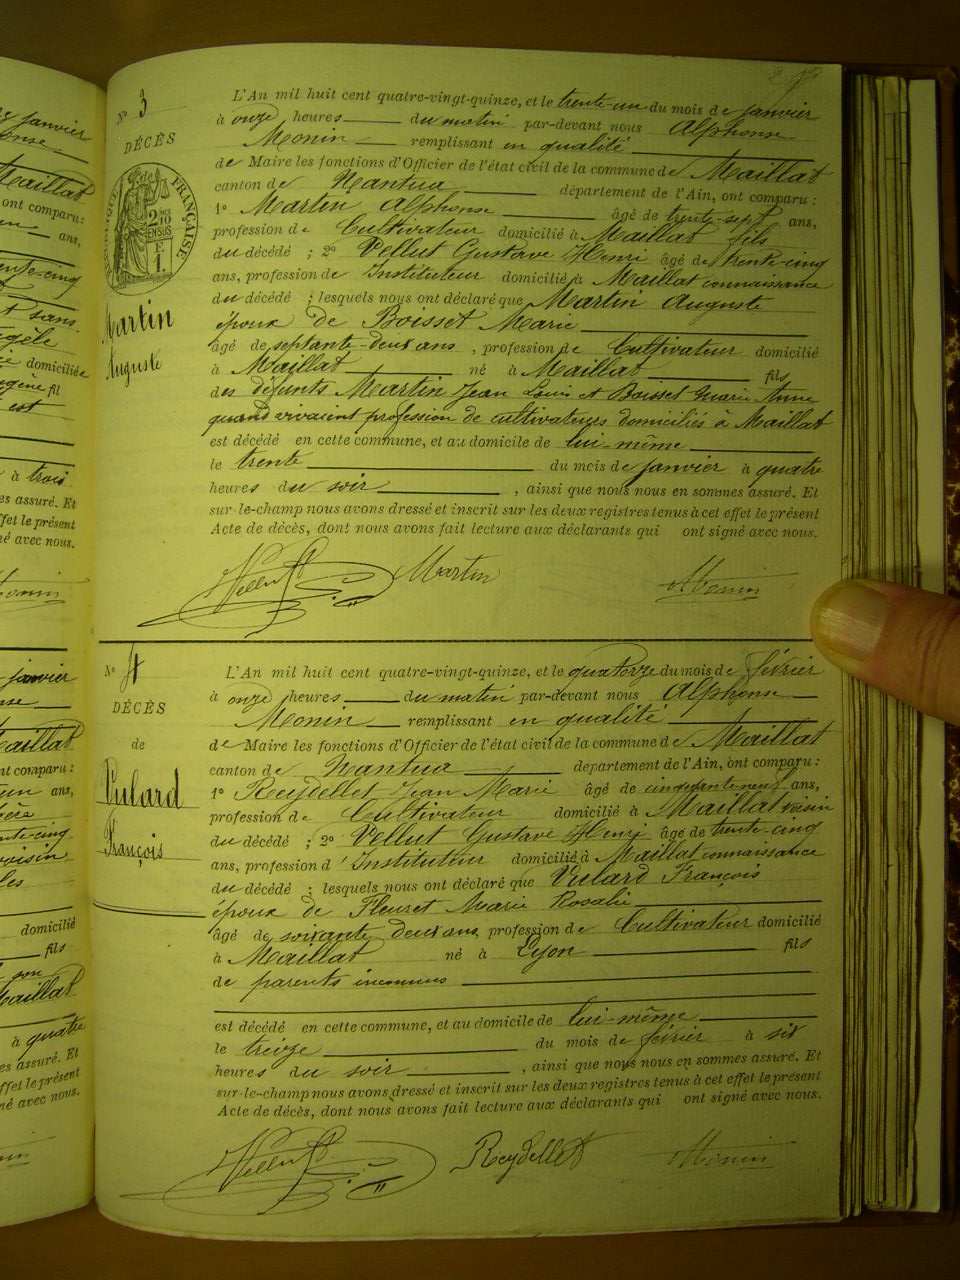 N° 3
DÉCÈS
RÉPUBLIQUE FRANÇAISE
2 DIXMES EN SUS
E
1.
Martin
Auguste
L'An mil huit cent quatre-vingt-quinze, et le trente-un du mois de janvier
à onze heures du matin par-devant nous Alphonse
Monin remplissant en qualité
de Maire les fonctions d'Officier de l'état civil de la commune de Maillat
canton de Nantua département de l'Ain, ont comparu :
1° Martin Alphonse âgé de trente-sept ans,
profession de Cultivateur domicilié à Maillat fils
du décédé ; 2° Vellut Gustave Henri âgé de trente-cinq
ans, profession de Instituteur domicilié à Maillat connaissance
du décédé ; lesquels nous ont déclaré que Martin Auguste
époux de Boisset Marie
âgé de septante-deux ans, profession de Cultivateur domicilié
à Maillat né à Maillat fils
des défunts Martin Jean Louis et Boisset Marie Anne
quand vivaient profession de cultivateurs domiciliés à Maillat
est décédé en cette commune, et au domicile de lui-même
le trente du mois de janvier à quatre
heures du soir, ainsi que nous nous en sommes assuré. Et
sur-le-champ nous avons dressé et inscrit sur les deux registres tenus à cet effet le présent
Acte de décès, dont nous avons fait lecture aux déclarants qui ont signé avec nous.
Vellut G. Martin A Monin
N° 4
DÉCÈS
de
Vulard
François
L'An mil huit cent quatre-vingt-quinze, et le quatorze du mois de février
à onze heures du matin par-devant nous Alphonse
Monin remplissant en qualité
de Maire les fonctions d'Officier de l'état civil de la commune de Maillat
canton de Nantua département de l'Ain, ont comparu :
1° Reydellet Jean Marie âgé de cinquante neuf ans,
profession de Cultivateur domicilié à Maillat voisin
du décédé ; 2° Vellut Gustave Henry âgé de trente-cinq
ans, profession d'Instituteur domicilié à Maillat connaissance
du décédé ; lesquels nous ont déclaré que Vulard François
époux de Fleuret Marie Rosalie
âgé de soixante deux ans profession de Cultivateur domicilié
à Maillat né à Lyon fils
de parents inconnus
est décédé en cette commune, et au domicile de lui-même
le treize du mois de février à six
heures du soir, ainsi que nous nous en sommes assuré. Et
sur-le-champ nous avons dressé et inscrit sur les deux registres tenus à cet effet le présent
Acte de décès, dont nous avons fait lecture aux déclarants qui ont signé avec nous.
Vellut G. Reydellet A Monin